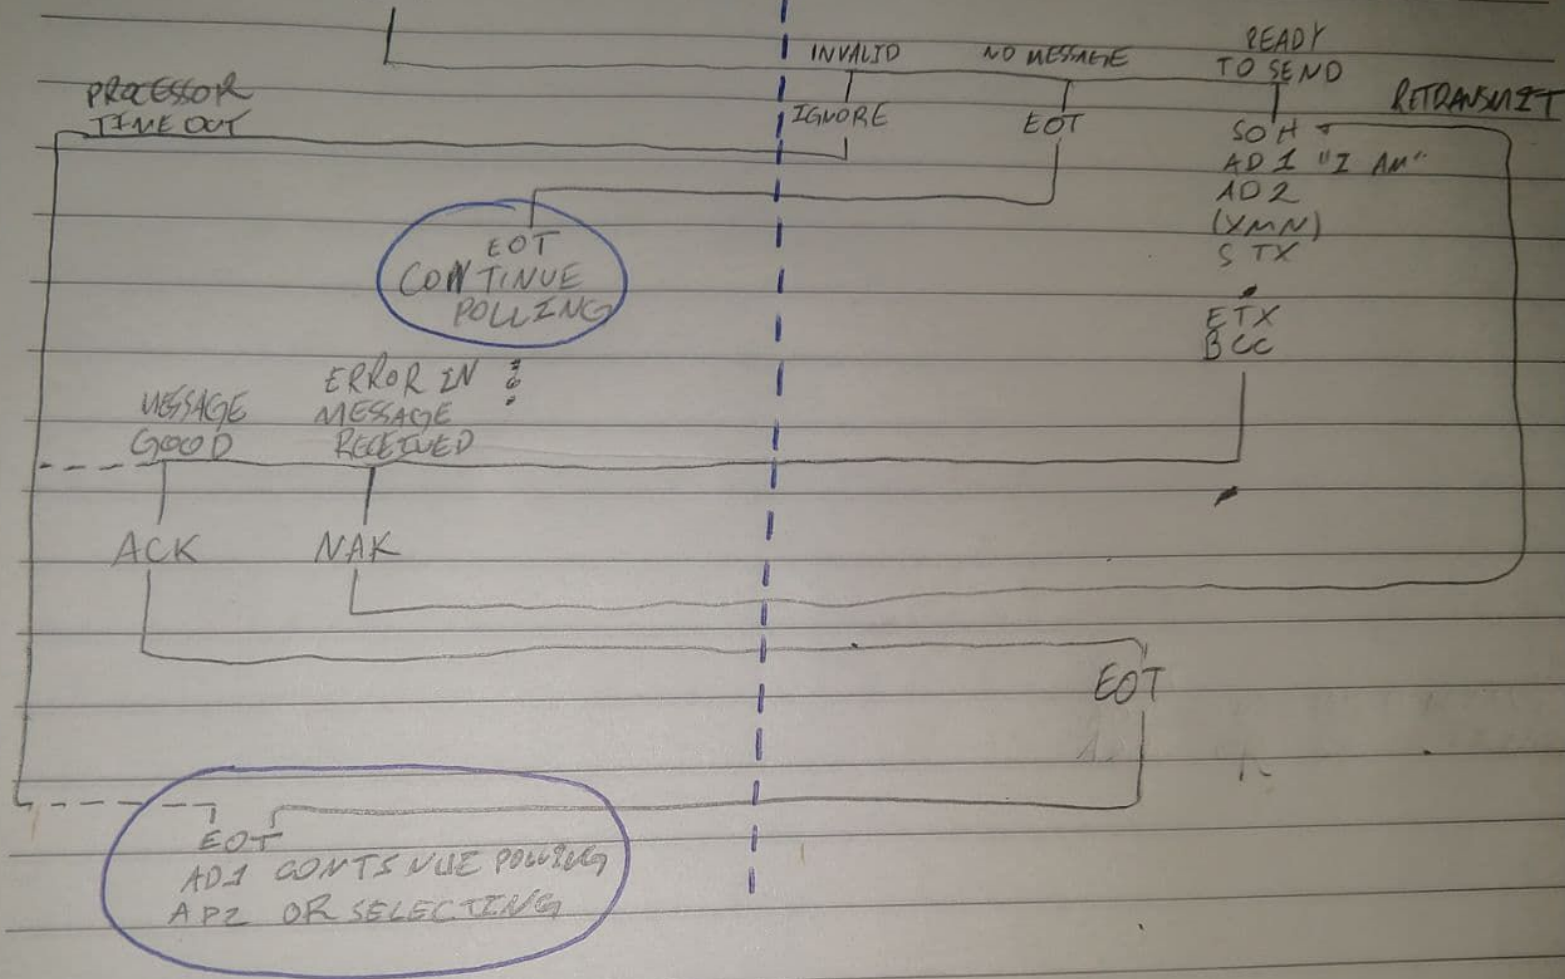 INVALID
NO MESSAGE
READY
TO SEND
PROCESSOR
TIME OUT
RETRANSMIT
IGNORE
EOT
SOH
AD1 "I AM"
AD2
(XMN)
STX
ETX
BCC
EOT
CONTINUE
POLLING
MESSAGE
GOOD
ERROR IN
MESSAGE
RECEIVED
ACK
NAK
EOT
EOT
AD1 CONTINUE POLLING
AD2 OR SELECTING